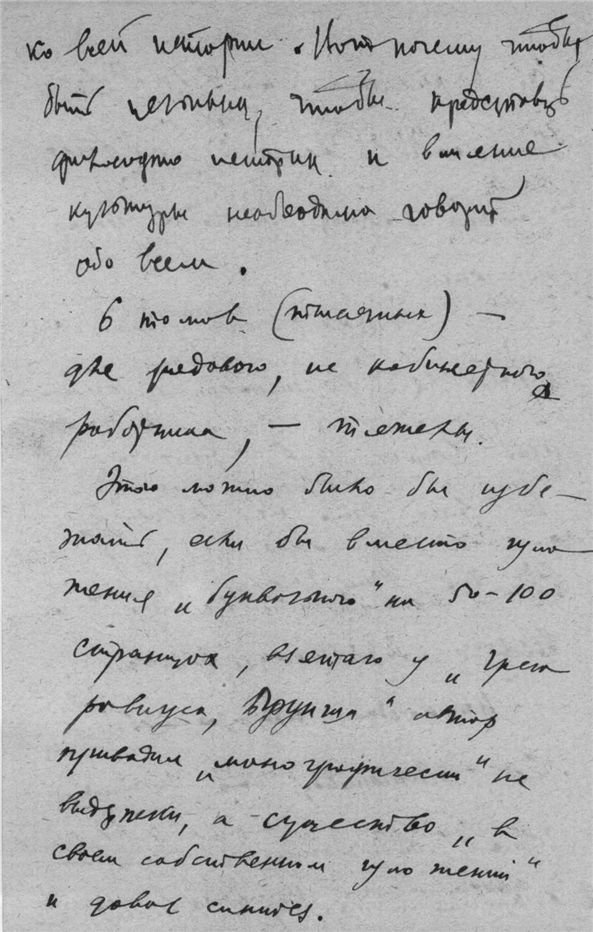 ко всей истории. Вот почему чтобы
быть цельным, чтобы представить
философию истории и влияние
культуры необходимо говорить
обо всем.
6 томов (печатных) —
для рядового, не кабинетного
работника, — тяжелы.
Этого можно было бы избе-
жать, если бы вместо изло
жения „буквального" на 50-100
страницах, взятого у „Грего
ровиуса, автор
приводил „монографически" не
выдержки, а существо „в
своем собственном изложении"
и давал синтез.